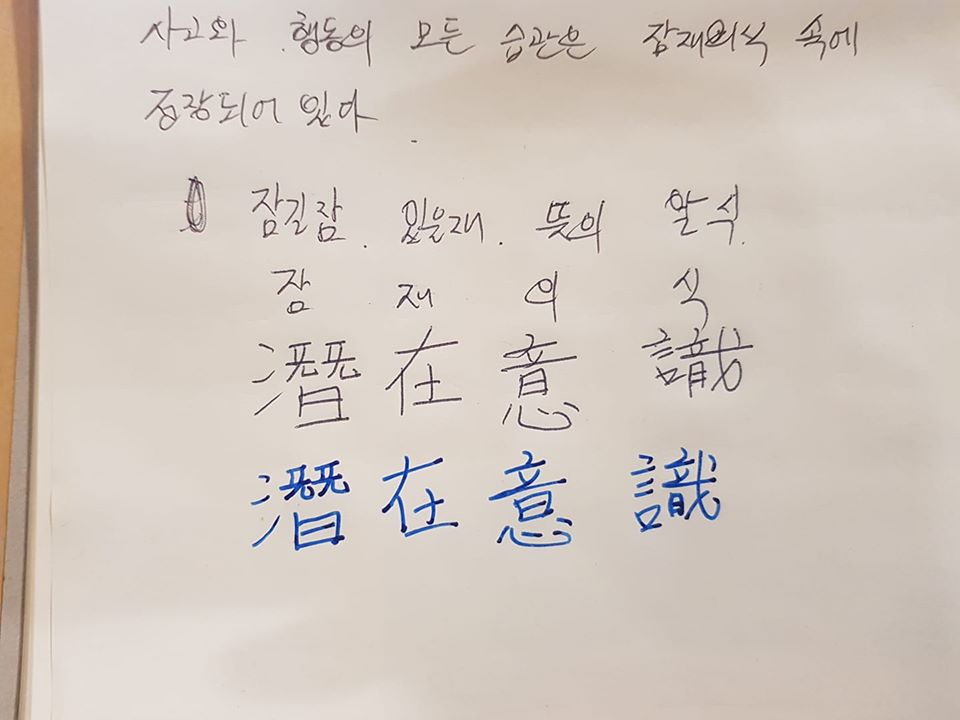 사고와 행동의 모든 습관은 잠재의식 속에
저장되어 있다
잠길잠. 있을재. 뜻의 알식.
잠 재 의 식
潛 在 意 識
潛 在 意 識